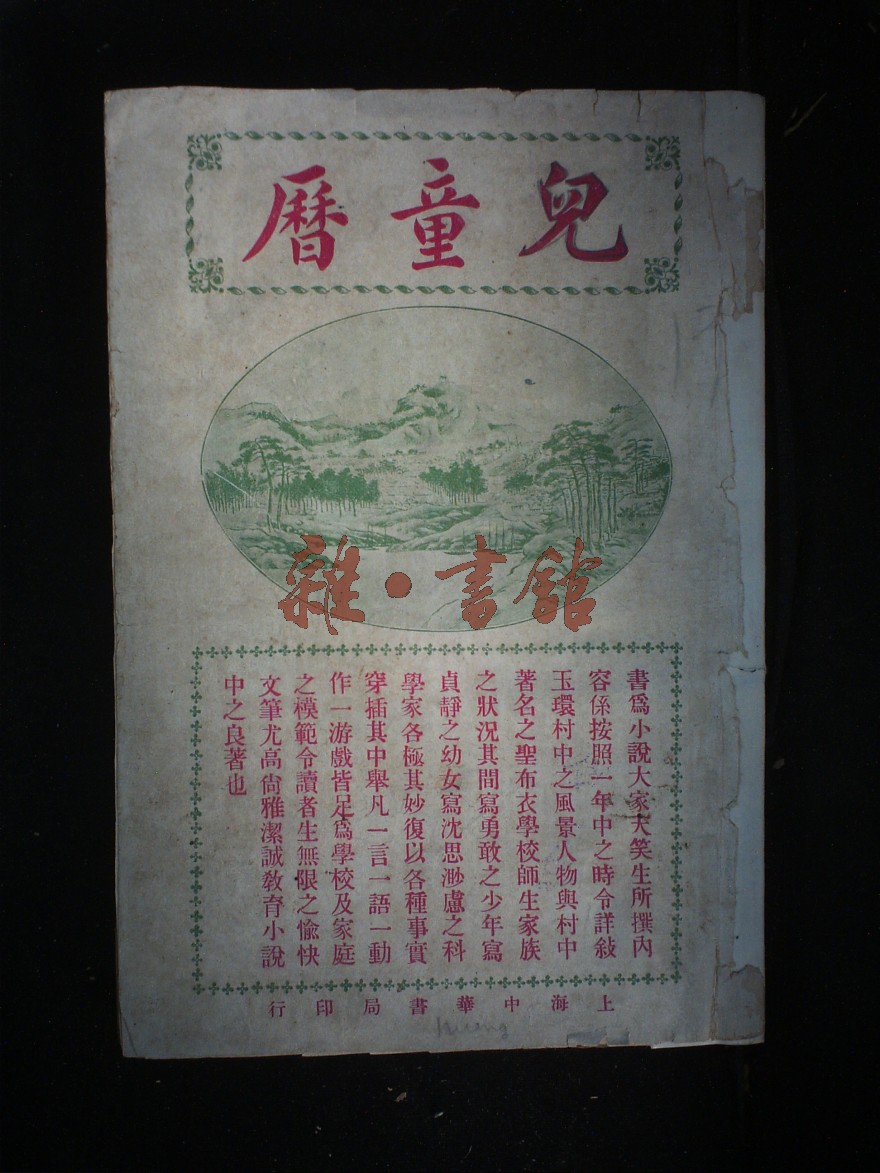 兒童曆
雜·書館
書爲小說大家天笑生所撰內
容係按照一年中之時令詳敍
玉環村中之風景人物與村中
著名之聖布衣學校師生家族
之狀況其間寫勇敢之少年寫
貞靜之幼女寫沈思渺慮之科
學家各極其妙復以各種事實
穿插其中舉凡一言一語一動
作一游戲皆足爲學校及家庭
之模範令讀者生無限之愉快
文筆尤高尙雅潔誠敎育小說
中之良著也
上海中華書局印行